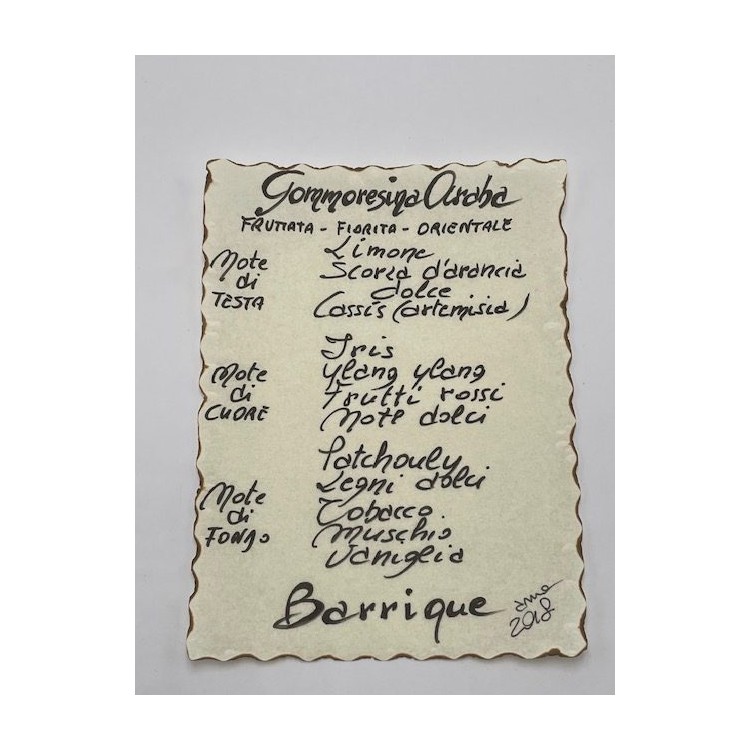 Gommoresina Araba
FRUTTATA - FIORITA - ORIENTALE
Note
di
TESTA
Limone
Scorza d'arancia
dolce
Cassis (artemisia)
Note
di
CUORE
Iris
Ylang ylang
Frutti rossi
Note dolci
Note
di
FONDO
Patchouly
Legni dolci
Tobacco
Muschio
Vaniglia
Barrique
2018